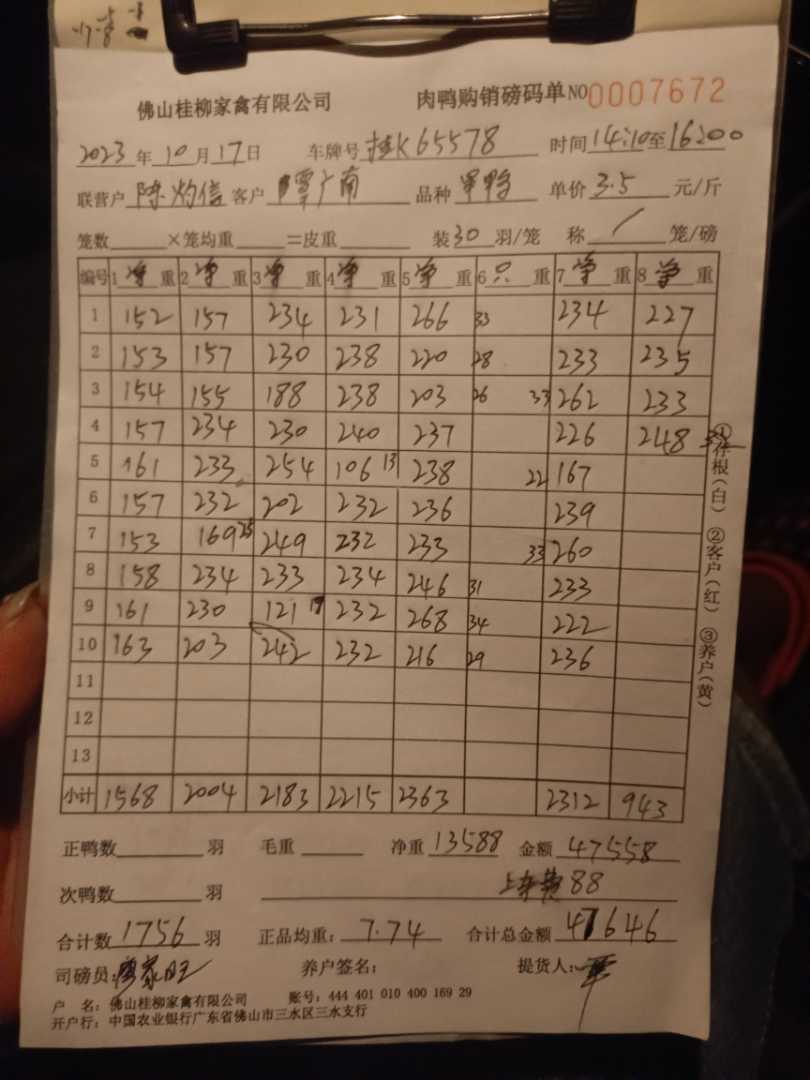 佛山桂柳家禽有限公司 肉鸭购销磅码单 NO 0007672
2023年10月17日 车牌号 桂K65578 时间14:10至16:00
联营户 陈灼信 客户 覃广南 品种 单价 3.5 元/斤
笼数 ×笼均重 =皮重 装30羽/笼 称 / 笼/磅
编号 1净重 2净重 3净重 4净重 5净重 6只重 7净重 8净重
1 152 157 234 231 266 33 234 227
2 153 157 230 238 220 28 233 235
3 154 155 188 238 203 26 33 262 233
4 157 234 230 240 237 226 248
5 161 233 254 106 13 238 22 167
6 157 232 202 232 236 239
7 153 169 25 249 232 233 33 260
8 158 234 233 234 246 31 233
9 161 230 121 17 232 268 34 222
10 163 203 242 232 216 29 236
11
12
13
小计 1568 2004 2183 2215 2363 2312 943
①存根(白) ②客户(红) ③养户(黄)
正鸭数 羽 毛重 净重 13588 金额 47558
次鸭数 羽 上车费 88
合计数 1756 羽 正品均重: 7.74 合计总金额 47646
司磅员: 养户签名: 提货人:
户 名: 佛山桂柳家禽有限公司 账号: 444 401 010 400 169 29
开户行: 中国农业银行广东省佛山市三水区三水支行